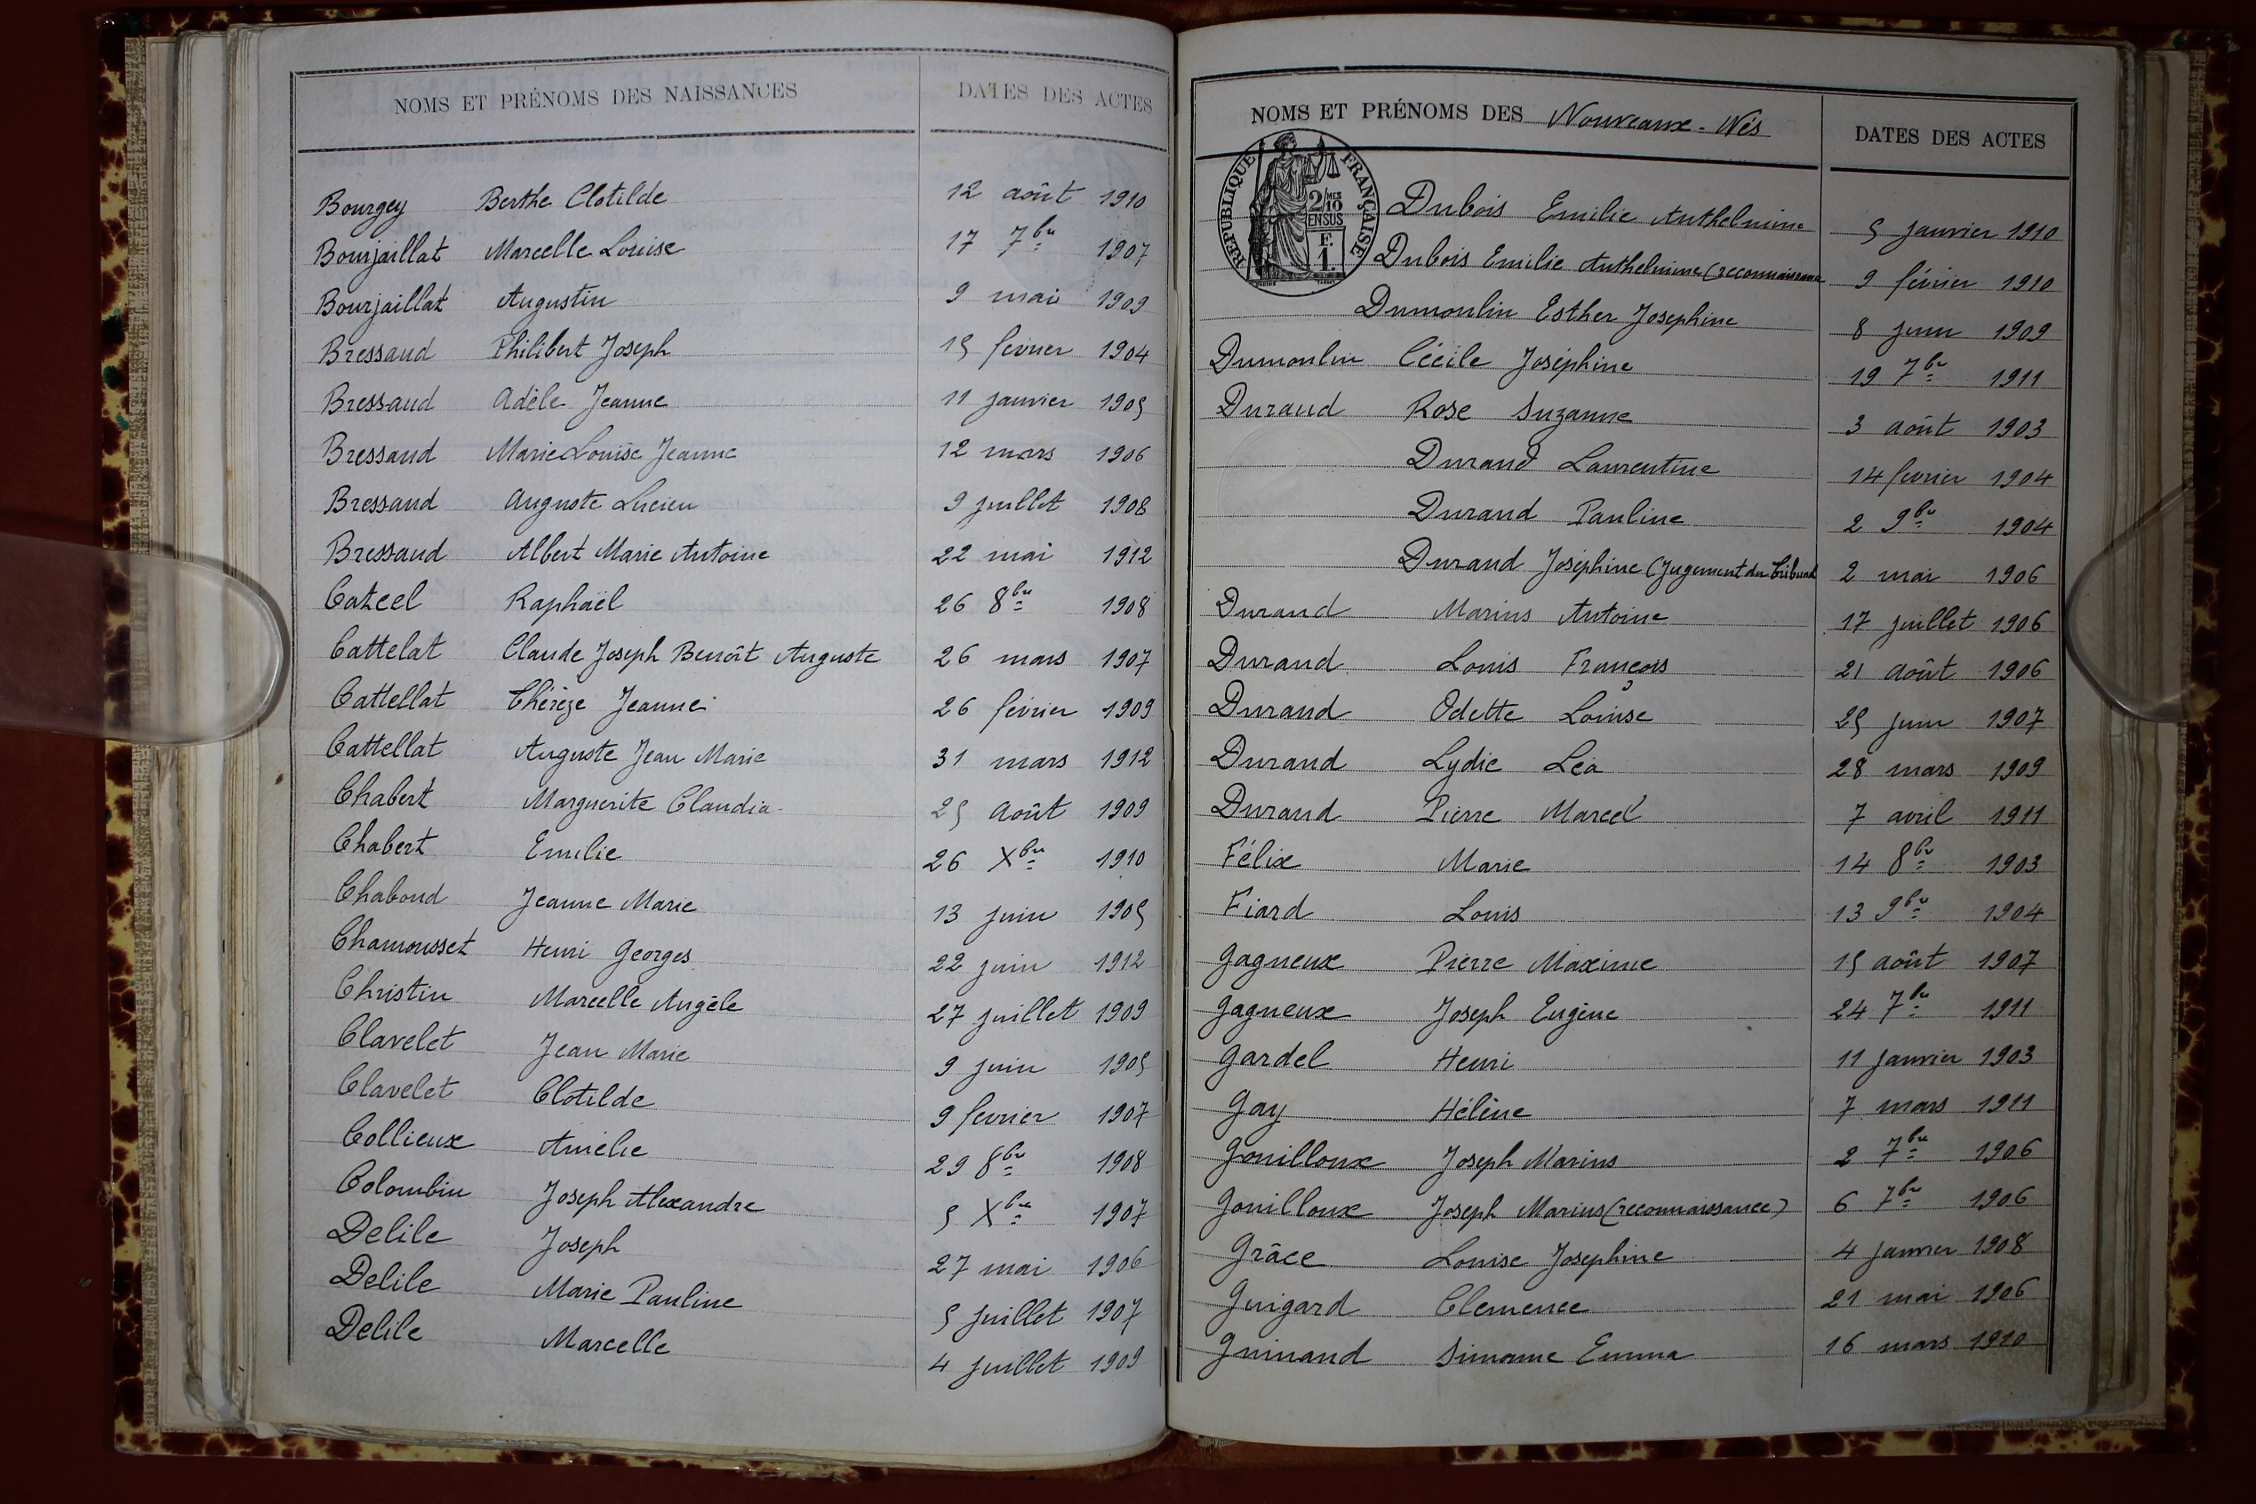 NOMS ET PRÉNOMS DES NAISSANCES DATES DES ACTES
Bourgey Berthe Clotilde 12 août 1910
Bourjaillat Marcelle Louise 17 7bre 1907
Bourjaillat Augustin 9 mai 1909
Bressaud Philibert Joseph 15 fevrier 1904
Bressaud Adèle Jeanne 11 janvier 1905
Bressaud Marie Louise Jeanne 12 mars 1906
Bressaud Auguste Lucien 9 juillet 1908
Bressaud Albert Marie Antoine 22 mai 1912
Catcel Raphaël 26 8bre 1908
Cattelat Claude Joseph Benoît Auguste 26 mars 1907
Cattellat Thérèze Jeanne 26 février 1909
Cattellat Auguste Jean Marie 31 mars 1912
Chabert Marguerite Claudia 25 août 1909
Chabert Emilie 26 Xbre 1910
Chaboud Jeanne Marie 13 juin 1905
Chamousset Henri Georges 22 juin 1912
Christin Marcelle Angèle 27 juillet 1909
Clavelet Jean Marie 9 juin 1905
Clavelet Clotilde 9 fevrier 1907
Collieux Amélie 29 8bre 1908
Colombin Joseph Alexandre 5 Xbre 1907
Delile Joseph 27 mai 1906
Delile Marie Pauline 5 juillet 1907
Delile Marcelle 4 juillet 1909
NOMS ET PRÉNOMS DES Nouveaux-Nés DATES DES ACTES
RÉPUBLIQUE FRANÇAISE
2/10 MES
EN SUS
F.
1.
Dubois Emilie Anthelmine 5 janvier 1910
Dubois Emilie Anthelmine (reconnaissance 9 février 1910
Dumoulin Esther Josephine 8 juin 1909
Dumoulin Cécile Joséphine 19 7bre 1911
Durand Rose Suzanne 3 août 1903
Durand Laurentine 14 fevrier 1904
Durand Pauline 2 9bre 1904
Durand Joséphine (Jugement du Tribunal 2 mai 1906
Durand Marius Antoine 17 juillet 1906
Durand Louis François 21 août 1906
Durand Odette Louise 25 juin 1907
Durand Lydie Léa 28 mars 1909
Durand Pierre Marcel 7 avril 1911
Félix Marie 14 8bre 1903
Fiard Louis 13 9bre 1904
Gagneux Pierre Maxime 15 août 1907
Gagneux Joseph Eugène 24 7bre 1911
Gardel Henri 11 janvier 1903
Gay Hélène 7 mars 1911
Gouilloux Joseph Marius 2 7bre 1906
Gouilloux Joseph Marius (reconnaissance) 6 7bre 1906
Grâce Louise Josephine 4 janvier 1908
Guigard Clemence 21 mai 1906
Guinand Simonne Emma 16 mars 1910